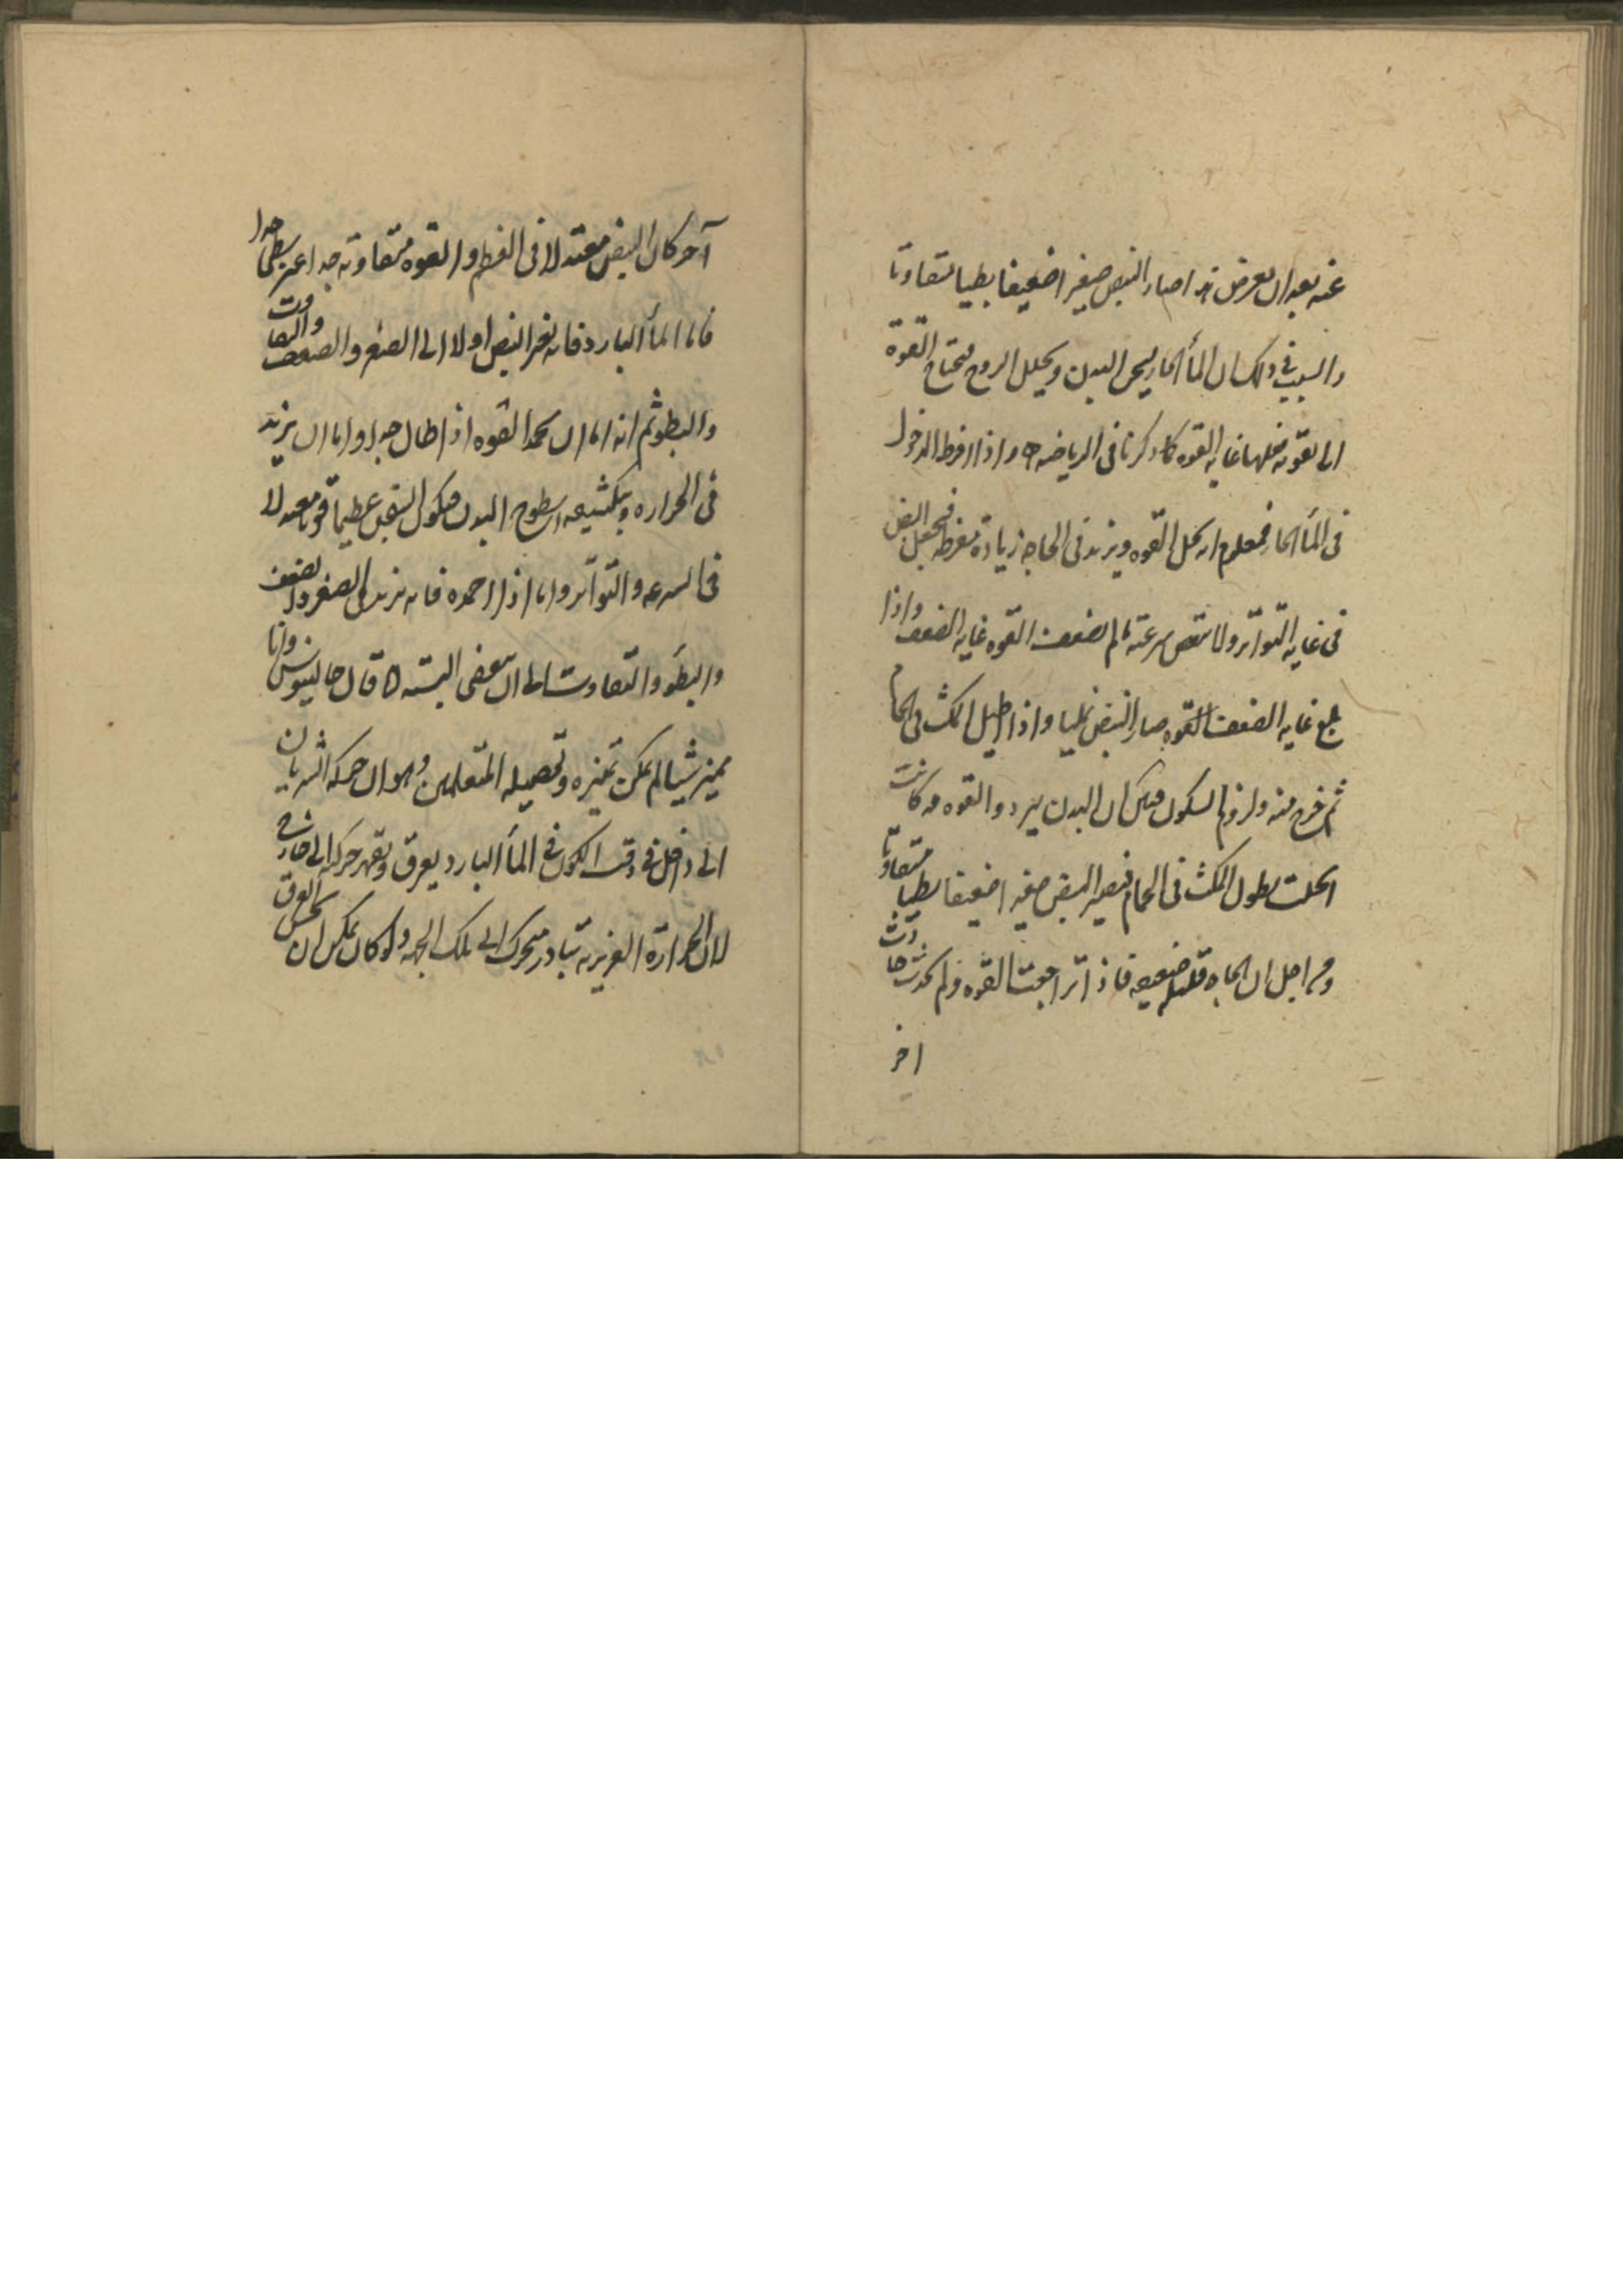 عنه بعد ان يعرض هذا صار النبض صغيرا ضعيفا بطيا متفاوتا
والسبب في ذلك ان المأ الحار يسخن البدن ويحلل الروح فتحتاج القوة
الى تقوية فعلها غاية القوه كما ذكرنا فى الرياضه واذا افرط الدخول
فى المأ الحار فمعلوم انه يحل القوه ويزيد فى الحاجة زيادة مفرطة فيجعل النبض
فى غاية التواتر ولا تنقص سرعته ما لم تضعف القوه غاية الضعف واذا
بلغ غاية الضعف القوه صار النبض نمليا واذا اطيل المكث فى الحمام
ثم خرج منه ولزم السكون فبين ان البدن يبرد والقوه قد كانت
انحلت بطول المكث فى الحمام فيصير النبض صغيرا ضعيفا بطيا متفاوتا
ومن اجل ان الحاجه قليله ضعيفه فاذا تراجعت القوه ولم يحدث حادث
اخر
آخر كان النبض معتدلا فى العظم والقوه متفاوته جدا غير بطى جدا
فاما المأ البارد فانه يغير النبض اولا الى الصغر والضعف والتفاوت
والبطو ثم انه اما ان يخمد القوه اذا طال جدا واما ان يزيد
فى الحراره بتكثيفه سطوح البدن فيكون النبض عظيما قويا معتدلا
فى السرعه والتواتر واما اذا اخمده فانه يزيد فى الصغر والضعف
والبطو والتفاوت الى ان يخفى البتة قال جالينوس وانا
مميز شيا لم يمكن تميزه وتحصيله المتعلمين وهو ان حركة الشريان
الى داخل فى وقت الكون فى المأ البارد يعرق وتقهر حركه الى خارج
لان الحرارة الغريزية تبادر متحرك الى تلك الجهه ولو كان يمكن ان يحس العرق